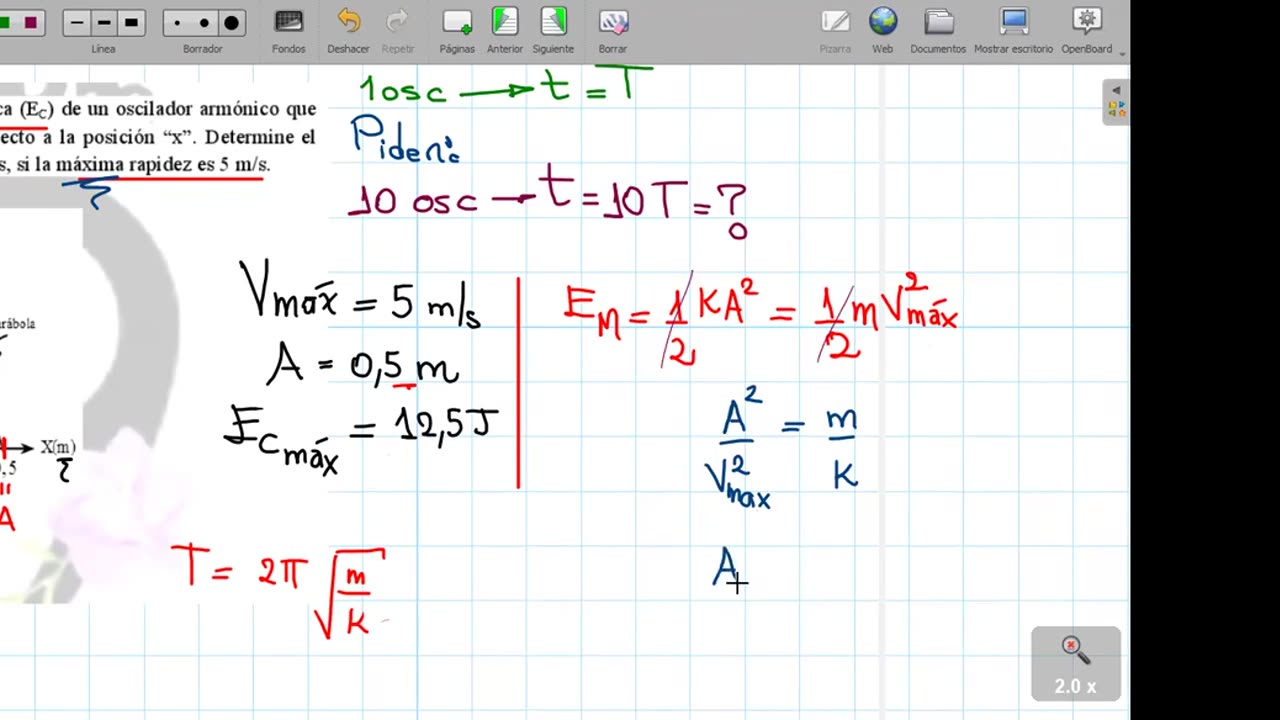 Línea Borrador Fondos Deshacer Repetir Páginas Anterior Siguiente Borrar Pizarra Web Documentos Mostrar escritorio OpenBoard
1 osc → t = T
(E_C) de un oscilador armónico que
a la posición “x”. Determine el
si la máxima rapidez es 5 m/s.
Piden:
10 osc → t = 10T = ?
Vmáx = 5 m/s
A = 0,5 m
Ecmáx = 12,5 J
E_M = 1/2 KA² = 1/2 mV²máx
A²/V²max = m/k
X(m)
A
T = 2π √(m/k)
A
2.0 x